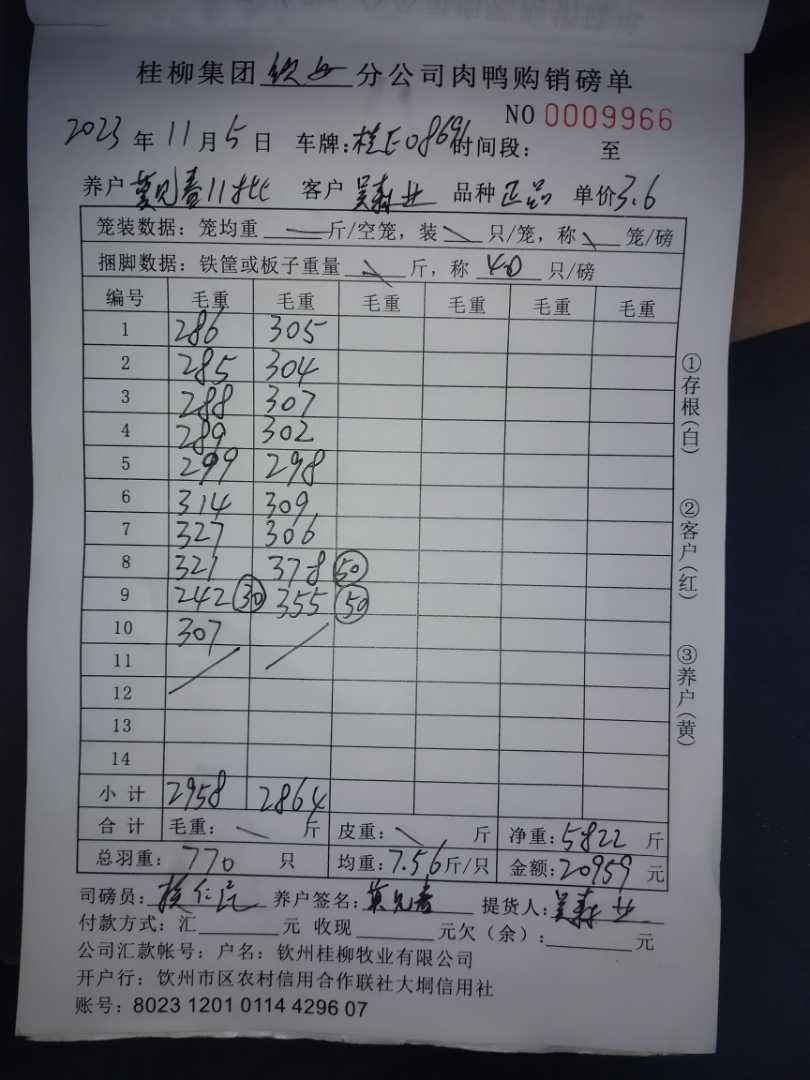 桂柳集团钦州分公司肉鸭购销磅单
NO 0009966
2023年11月5日 车牌:桂E08696 时间段: 至
养户 莫见春11批 客户 吴森业 品种 正品 单价3.6
笼装数据: 笼均重 — 斤/空笼, 装 \ 只/笼, 称 \ 笼/磅
捆脚数据: 铁筐或板子重量 \ 斤, 称 40 只/磅
编号 毛重 毛重 毛重 毛重 毛重 毛重
1 286 305
2 285 304
3 288 307
4 289 302
5 299 298
6 314 309
7 327 306
8 321 378 50
9 242 30 355 50
10 307
11
12
13
14
小计 2958 2864
合计 毛重: \ 斤 皮重: \ 斤 净重:5822 斤
总羽重: 770 只 均重:7.56斤/只 金额:20959元
司磅员: 养户签名:莫见春 提货人:吴森业
付款方式:汇 元 收现 元欠(余): 元
公司汇款帐号: 户名: 钦州桂柳牧业有限公司
开户行: 钦州市区农村信用合作联社大垌信用社
账号: 8023 1201 0114 4296 07
①存根(白)
②客户(红)
③养户(黄)